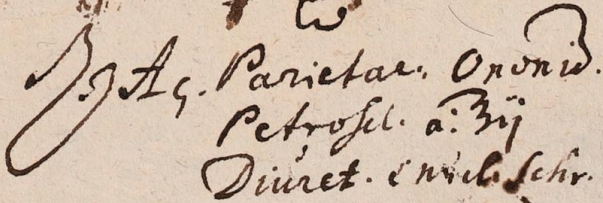 ℞ Aq. Parietar. Ononid.
Petrosel. a: ℥ij
Diuret. Schr.